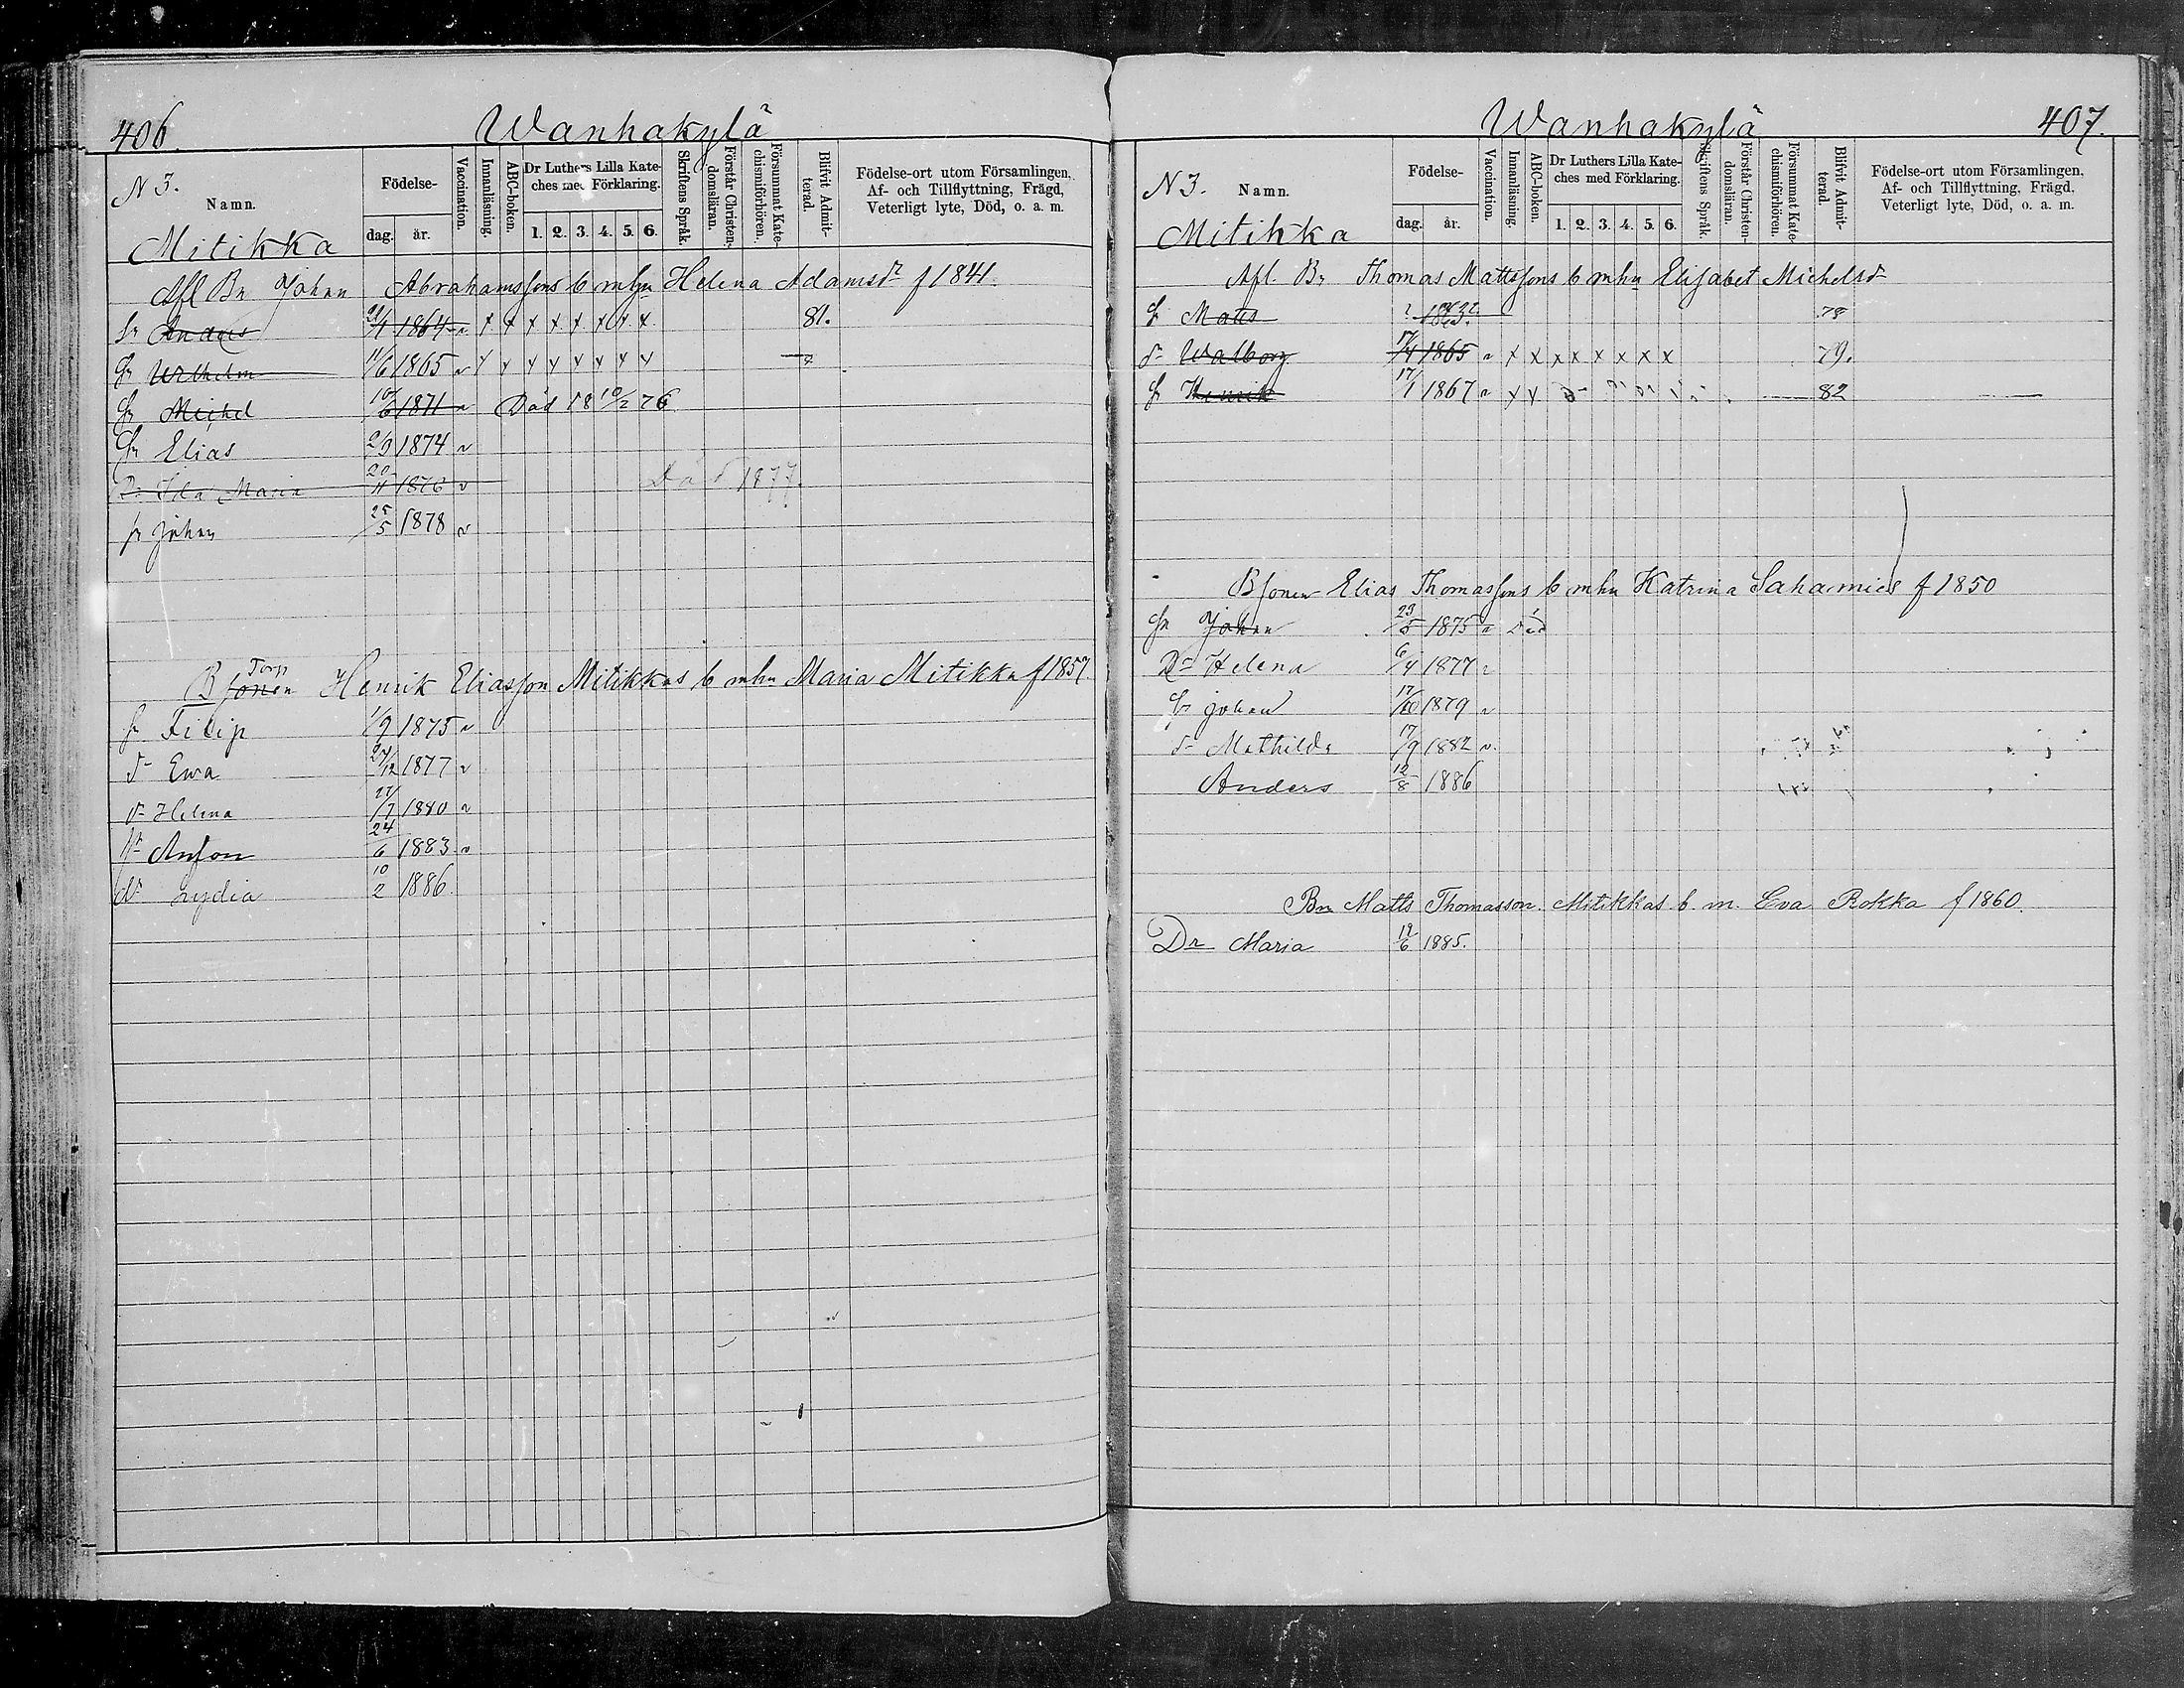 406.
Wanhakylä
N 3.
Namn.
Födelse-
dag.
år.
Vaccination.
Innanläsning.
ABC-boken.
Dr Luthers Lilla Kate-
ches med Förklaring.
1. 2. 3. 4. 5. 6.
Skriftens Språk.
Förstår Christen-
domsläran.
Försummat Kate-
chismiförhören.
Blifvit Admit-
terad.
Födelse-ort utom Församlingen,
Af- och Tillflyttning, Frägd,
Veterligt lyte, Död, o. a. m.
Mitikka
Afl Bn Johan Abrahamssons b mhn Helena Adamsdr f 1841.
Sn Anders 1864 v x x x x x x x x 81.
Sn Wilhelm 11/6 1865 v x x x x x x x x
Sn Michel 10/6 1871 v Död 18 10/2 76
Sn Elias 2/9 1874 v
Dr Ida Maria 20/11 1876 v Död 1877.
Sn Johan 25/5 1878 v
Torp
B sonen Henrik Eliasson Mitikkas b mhn Maria Mitikka f 1857.
Sn Filip 1/9 1875 v
dr Ewa 1877 v
dr Helena 27/7 1880 v
Sn Anton 24/6 1883 v
dr Lydia 10/2 1886.
Wanhakylä
407.
N 3.
Namn.
Födelse-
dag.
år.
Vaccination.
Innanläsning.
ABC-boken.
Dr Luthers Lilla Kate-
ches med Förklaring.
1. 2. 3. 4. 5. 6.
Skriftens Språk.
Förstår Christen-
domsläran.
Försummat Kate-
chismiförhören.
Blifvit Admit-
terad.
Födelse-ort utom Församlingen,
Af- och Tillflyttning, Frägd,
Veterligt lyte, Död, o. a. m.
Mitikka
Afl. Bn Thomas Mattssons b mhn Elisabet Michelsdr
S Matts 78
dr Walborg 17/4 1865 v x x x x x x x x 79.
S Henrik 17/1 1867 v x x 82
B sonen Elias Thomassons b mhn Katrina Sahamies f 1850
Sn Johan 23/5 1875 v Död
Dr Helena 6/4 1877 v
Sn Johan 17/10 1879 v
dr Mathilda 17/9 1882 v.
Anders 12/8 1886
Bn Matts Thomasson Mitikkas b. m. Eva Rokka f 1860.
Dr Maria 12/6 1885.